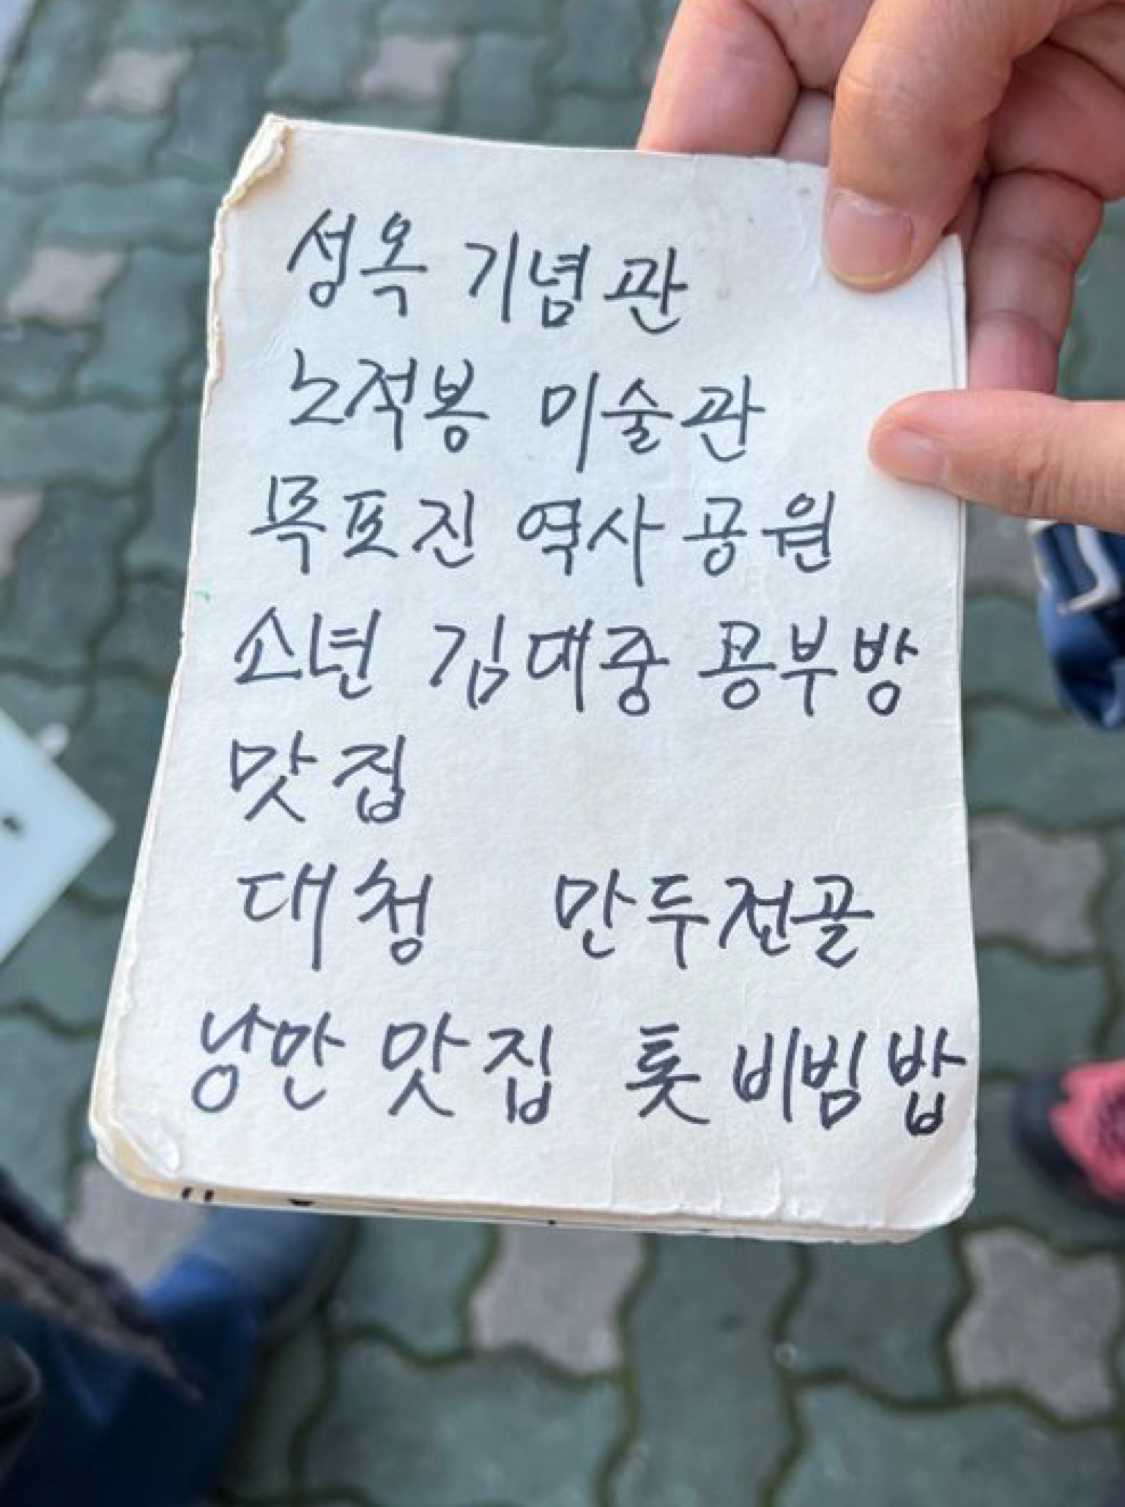 성옥 기념관
노적봉 미술관
목포진 역사공원
소년 김대중 공부방
맛집
대청 만두전골
낭만 맛집 톳 비빔밥